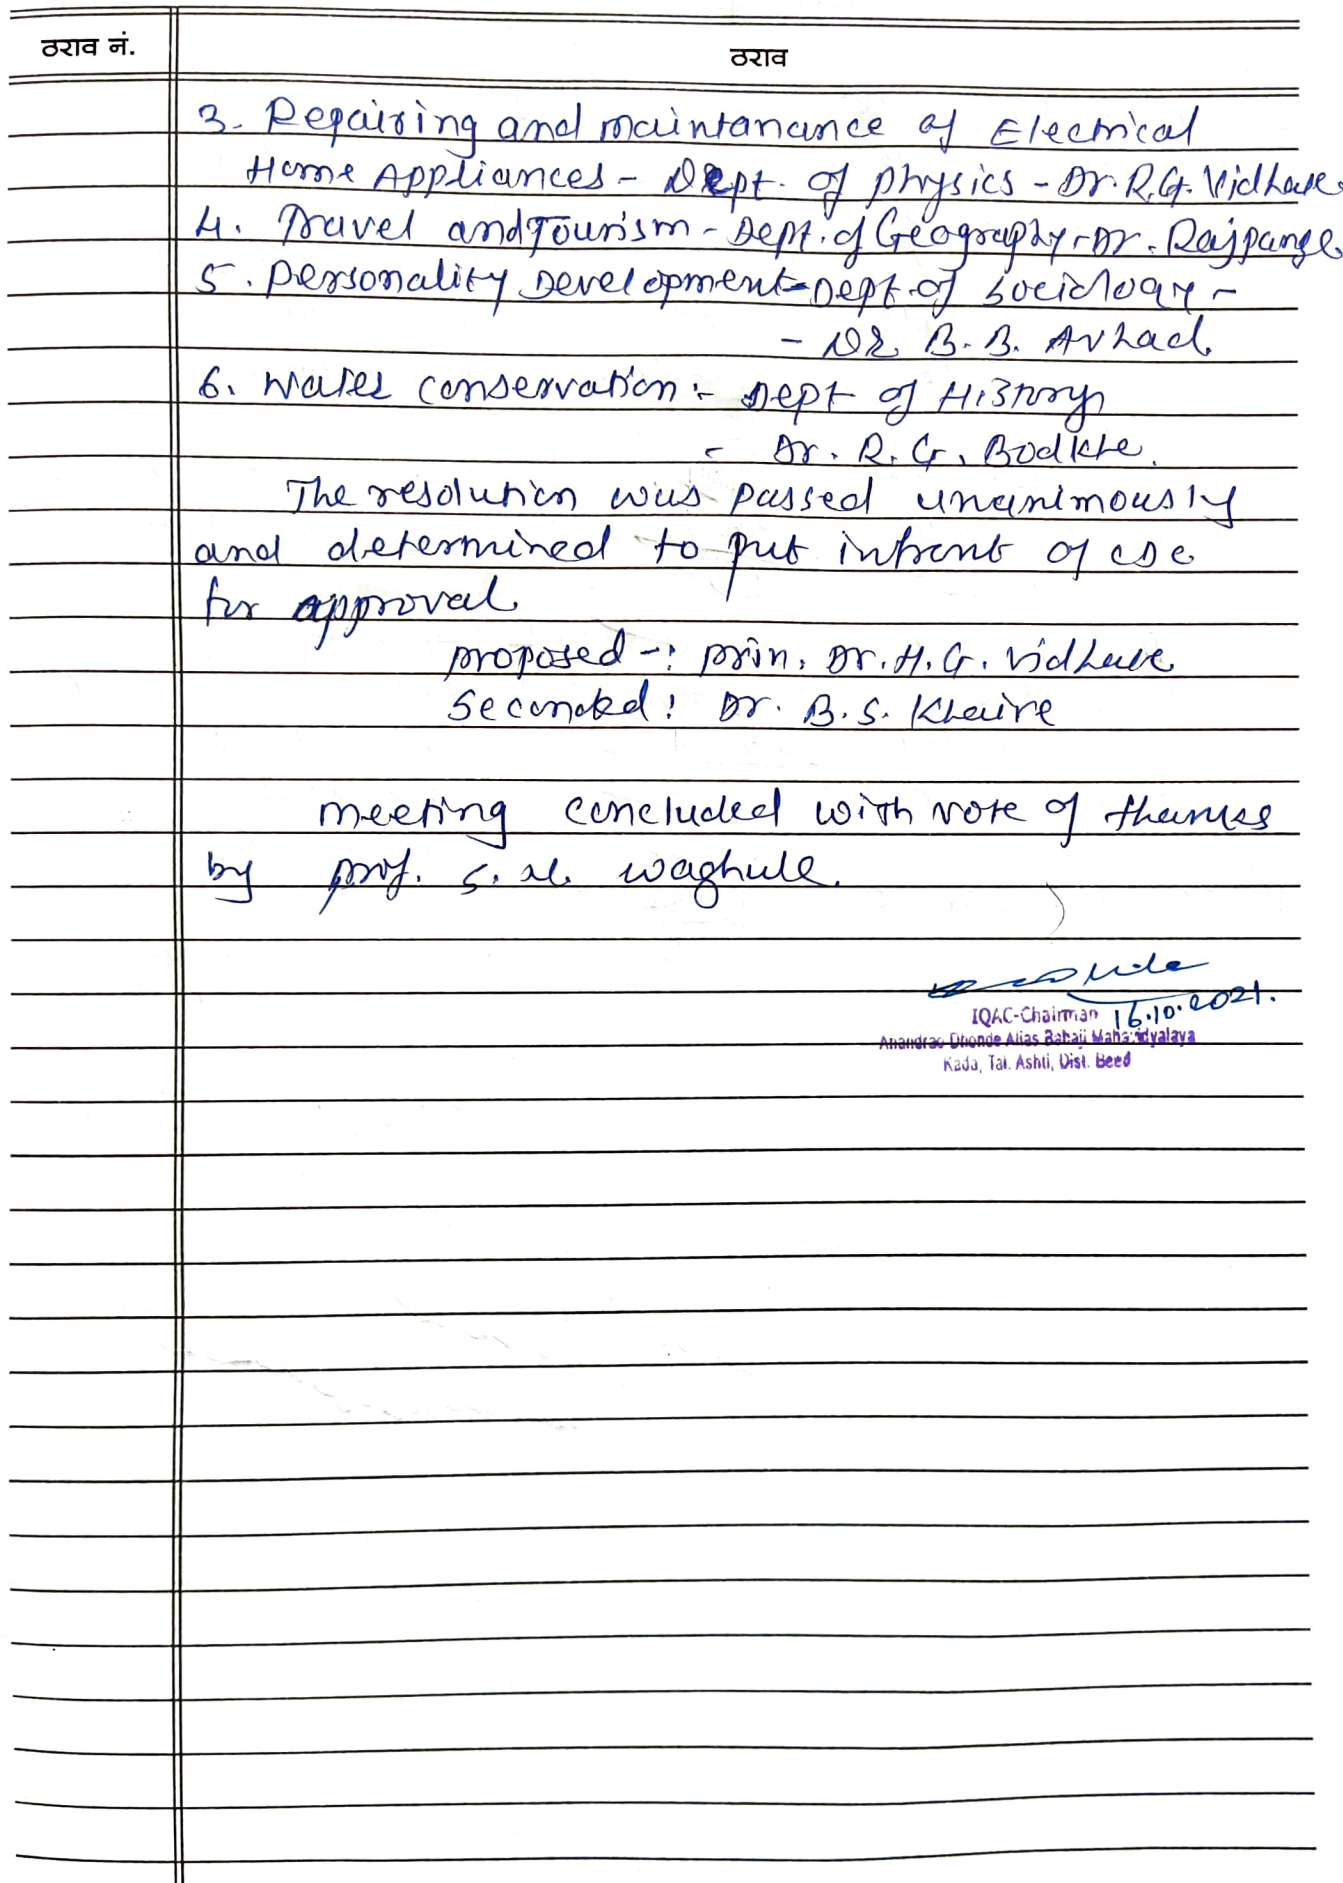 ठराव नं.
ठराव
3. Repairing and maintanance of Electrical
Home Appliances - Dept. of physics - Dr. R.G. Vidhate
4. Travel and Tourism - Dept. of Geography - Dr. Rajpange
5. Personality Development - Dept. of Sociology -
- Dr. B. B. Avhad.
6. Water conservation :- Dept of History
- Dr. R. G. Bodkhe.
The resolution was passed unanimously
and determined to put infront of CDC
for approval.
proposed -: prin. Dr. H. G. Vidhate
Seconded : Dr. B. S. Khaire
meeting concluded with vote of thanks
by prof. S. M. Waghule.
16.10.2021.
IQAC-Chairman
Anandrao Dhonde Alias Babaji Mahavidyalaya
Kada, Tal. Ashti, Dist. Beed